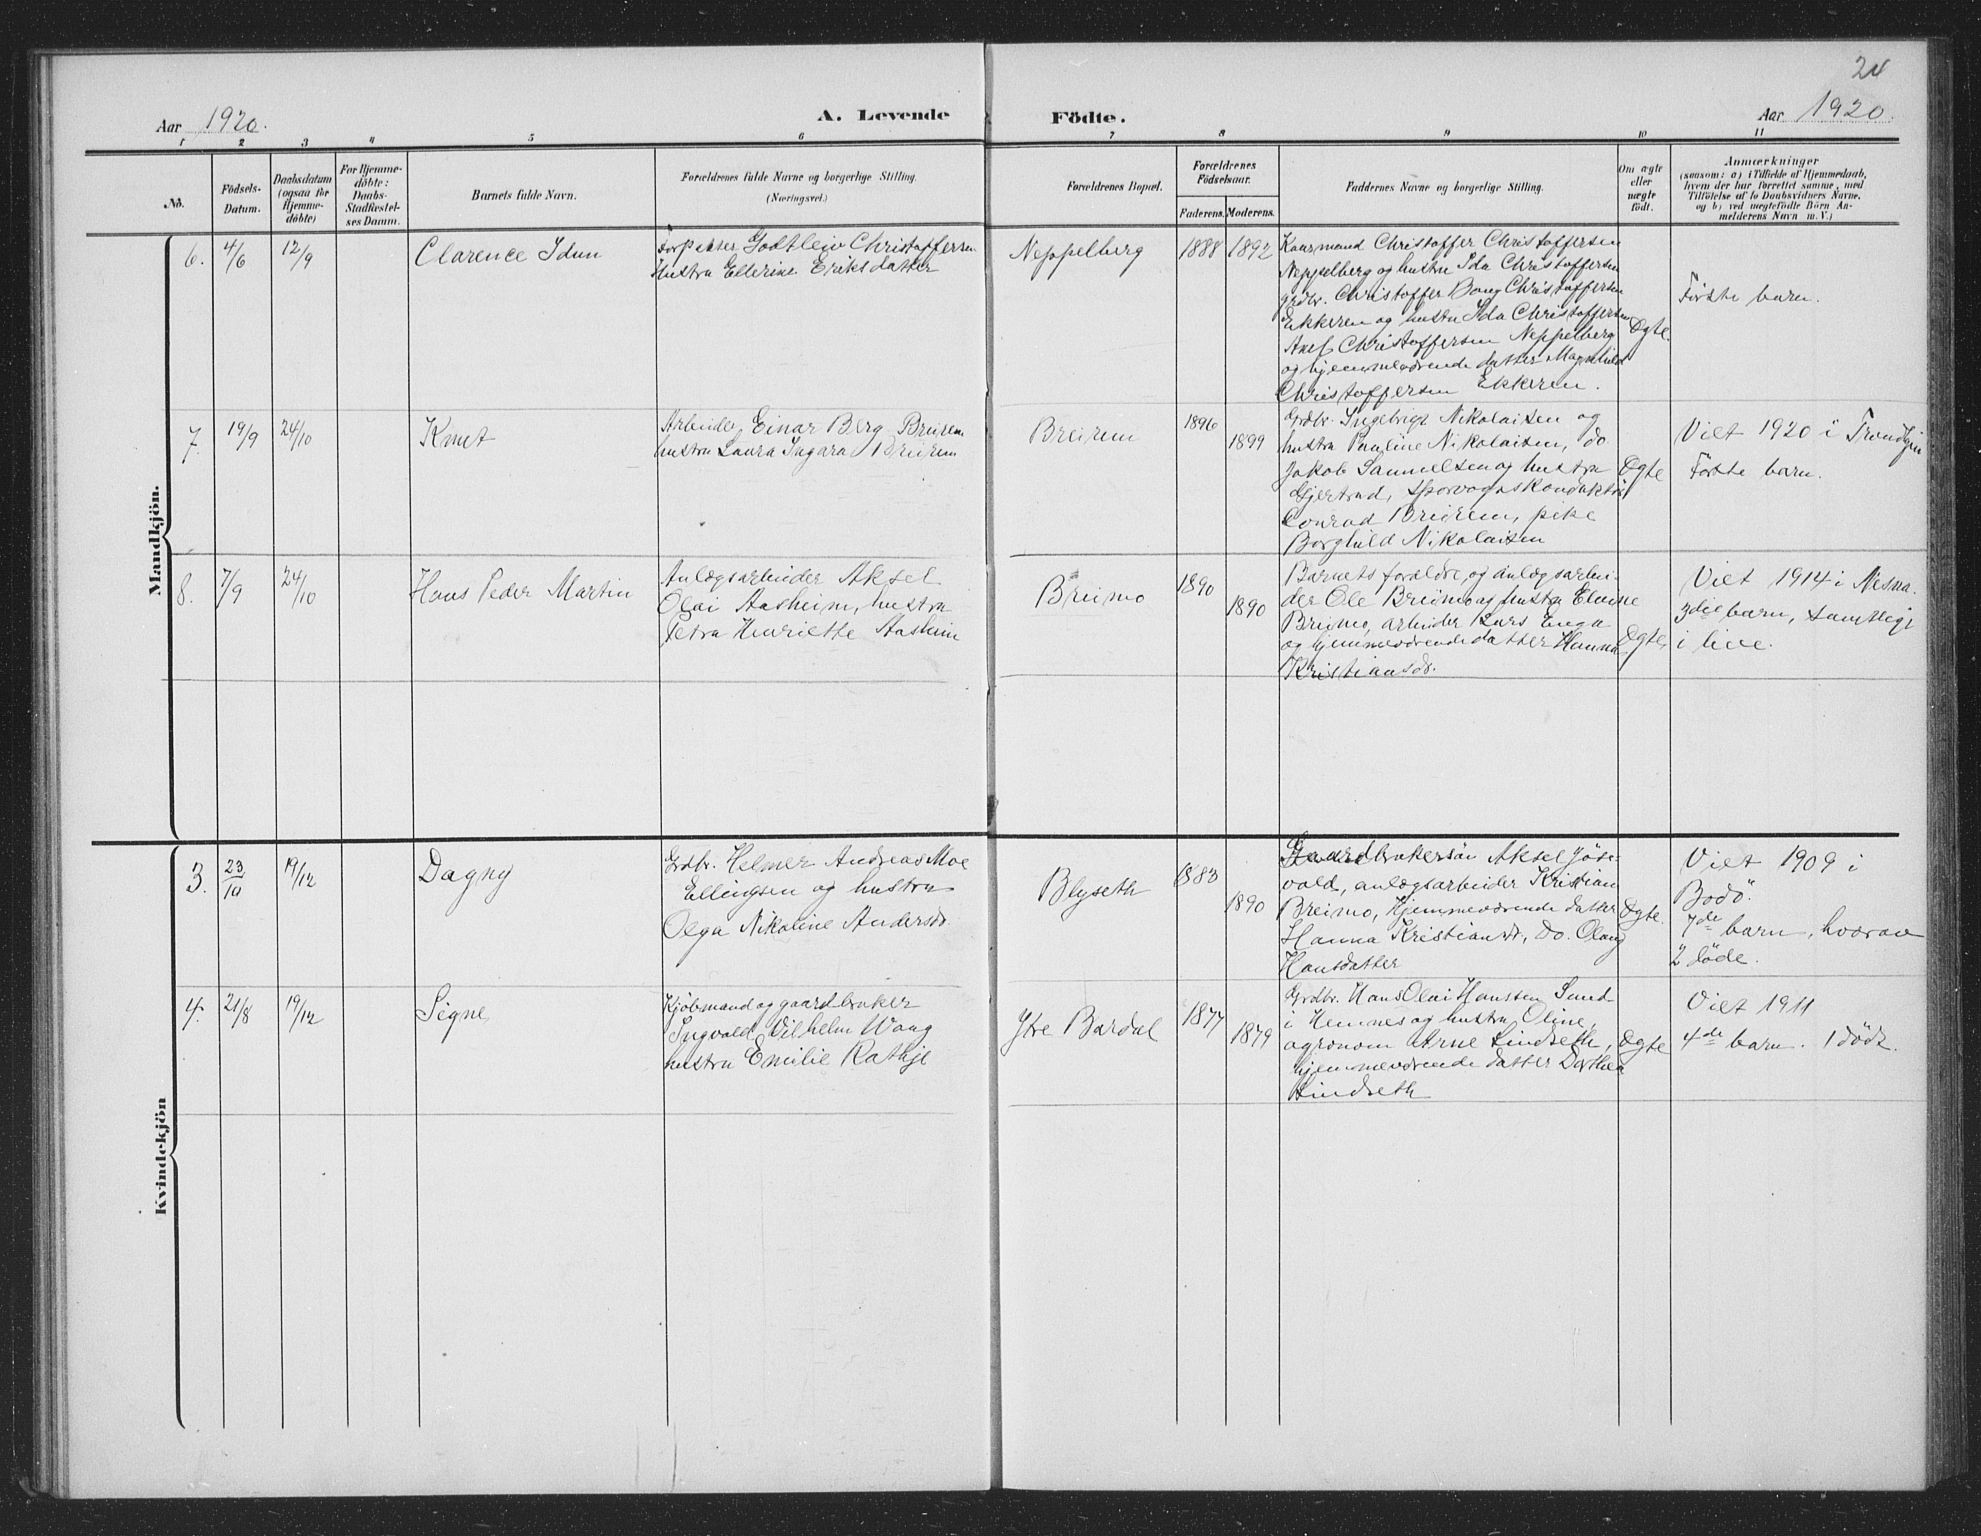 24
Aar 1920.
A. Levende
Födte.
Aar 1920.
1 2 3 4 5 6 7 8 9 10 11
No.
Födsels-
Datum.
Daabsdatum
(ogsaa för
Hjemme-
döbte)
For Hjemme-
döbte:
Daabs-
Stadfæstel-
ses Datum.
Barnets fulde Navn.
Forældrenes fulde Navne og borgerlige Stilling.
(Næringsvei.)
Forældrenes Bopæl.
Forældrenes
Födselsaar.
Faderens. Moderens.
Faddernes Navne og borgerlige Stilling.
Om ægte
eller
uægte
födt.
Anmærkninger
(saasom: a) i Tilfælde af Hjemmedaab,
hvem der har forrettet samme, med
Tilföielse af to Daabsvidners Navne,
og b) ved uægtefödte Börn An-
melderens Navn m. V.)
Mandkjön.
6. 4/6 12/9
Clarence Idun
Forpakter Godtleiv Christoffersen
Hustru Ellerine Eriksdatter
Neppelberg
1888 1892
Kaarmand Christoffer Christoffersen
Neppelberg og hustru Ida Christoffersen
grdbr. Christoffer Bang Christoffersen
Ekkeren og hustru Ida Christoffersen
Axel Christoffersen Neppelberg
og hjemmeværende datter Magnhild
Christoffersen Ekkeren.
Ægte.
Første barn.
7. 19/9 24/10
Knut
Arbeider Einar Berg Breirem
hustru Laura Ingara Breirem
Breirem
1896
1899
Grdbr. Ingebrigt Nikolaisen og
hustru Pauline Nikolaisen, do
Jakob Samuelsen og hustru
Gjertrud, sporvognskonduktör
Conrad Breirem, pike
Borghild Nikolaisen
Ægte
Viet 1920 i Trondhjem
Første barn.
8. 7/9 24/10
Hans Peder Martin
Anlægsarbeider Aksel
Olai Aasheim, hustru
Petra Henriette Aasheim
Breimo
1890
1890
Barnets forældre, og anlægsarbei-
der Ole Breimo og hustru Elvine
Breimo, arbeider Lars Enga
og hjemmeværende datter Hanna
Kristiansd.
Ægte.
Viet 1914 i Nesna.
3die barn, samtlige
i live.
Kvindekjön
3. 23/10 19/12
Dagny
Grdbr. Helmer Andreas Moe
Ellingsen og hustru
Olga Nikoline Andersdr.
Blyseth
1883
1890
Gaardbrukersön Aksel Jöse-
vold, anlægsarbeider Kristian
Breimo, Hjemmeværende datter
Hanna Kristiansdr, do. Olaug
Hansdatter
Ægte.
Viet 1909 i
Bodö.
7de barn, hvorav
2 døde.
4. 21/8 19/12
Signe
Kjöbmand og gaardbruker
Ingvald Vilhelm Wang
hustru Emilie Rathje
Ytre Bardal
1877
1879
Grdbr. Hans Olai Hanssen Sund
i Hemnes og hustru Oline,
agronom Arne Lindseth,
hjemmeværende datter Dorthea
Lindseth
Ægte
Viet 1911
4de barn. 1 död.